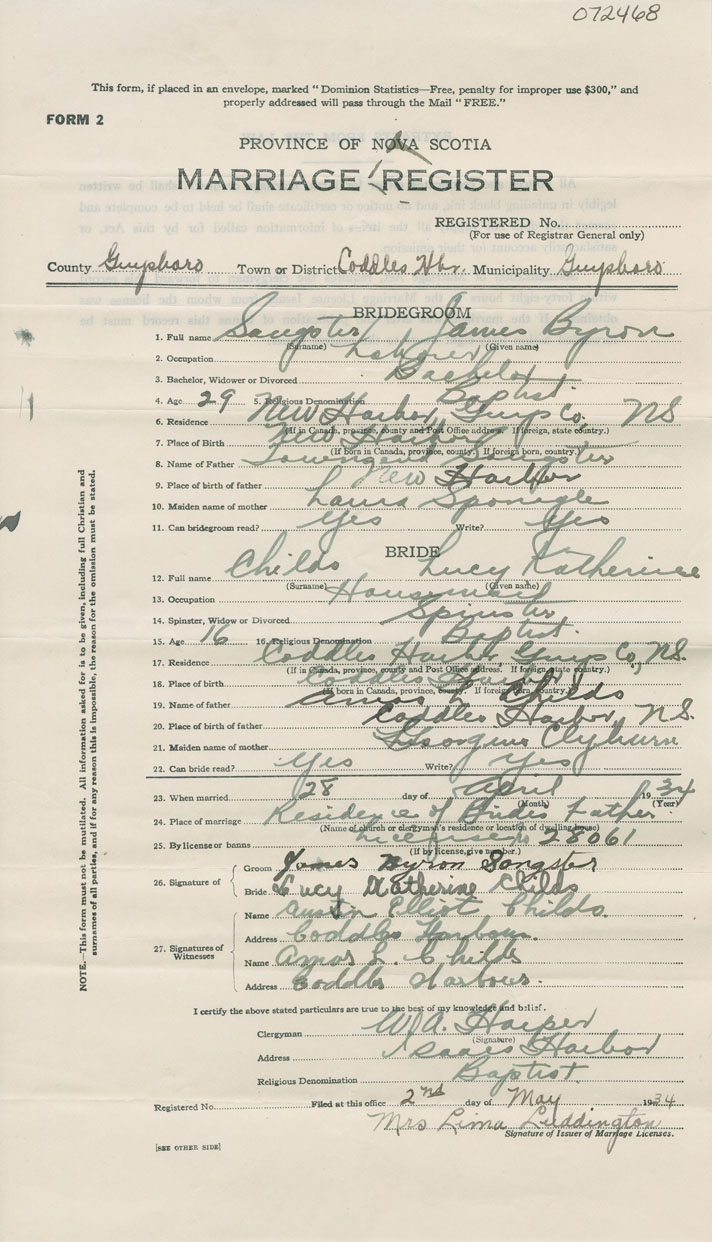 072468
This form, if placed in an envelope, marked "Dominion Statistics—Free, penalty for improper use $300," and
properly addressed will pass through the Mail "FREE."
FORM 2
PROVINCE OF NOVA SCOTIA
MARRIAGE REGISTER
REGISTERED No.
(For use of Registrar General only)
County Guysboro Town or District Coddles Hbr. Municipality Guysboro
BRIDEGROOM
1. Full name Sangster James Byron
(Surname) (Given name)
2. Occupation Labourer
3. Bachelor, Widower or Divorced Bachelor
4. Age 29 5. Religious Denomination Baptist
6. Residence New Harbor, Guys Co, NS
(If in Canada, province, county and Post Office address. If foreign, state country.)
7. Place of Birth New Harbor
(If born in Canada, province, county. If foreign born, country.)
8. Name of Father Townsend Sangster
9. Place of birth of father New Harbor
10. Maiden name of mother Laura Sponagle
11. Can bridegroom read? Yes Write? Yes
BRIDE
12. Full name Childs Lucy Katherine
(Surname) (Given name)
13. Occupation Housemaid
14. Spinster, Widow or Divorced Spinster
15. Age 16 16. Religious Denomination Baptist
17. Residence Coddles Harbor Guys Co, NS.
(If in Canada, province, county and Post Office address. If foreign, state country.)
18. Place of birth Coddles Harbor
(If born in Canada, province, county. If foreign born, country.)
19. Name of father Amos L Childs
20. Place of birth of father Coddles Harbor, N.S.
21. Maiden name of mother Georgina Clyburn
22. Can bride read? Yes Write? Yes
23. When married 28 day of April 1934
(Month) (Year)
24. Place of marriage Residence of Brides Father
(Name of church or clergyman's residence or location of dwelling house)
25. By license or banns License No 28061
(If by license, give number.)
26. Signature of Groom James Byron Sangster
Bride Lucy Katherine Childs
27. Signatures of Witnesses
Name Austin Elliot Childs.
Address Coddles Harbour.
Name Amos L. Childs
Address Coddles Harbour.
I certify the above stated particulars are true to the best of my knowledge and belief.
Clergyman W. A. Harper
(Signature)
Address Isaacs Harbor
Religious Denomination Baptist
Registered No. Filed at this office 2nd day of May 1934
Mrs Lima Luddington
Signature of Issuer of Marriage Licenses.
[SEE OTHER SIDE]
NOTE.—This form must not be mutilated. All information asked for is to be given, including full Christian and
surnames of all parties, and if for any reason this is impossible, the reason for the omission must be stated.